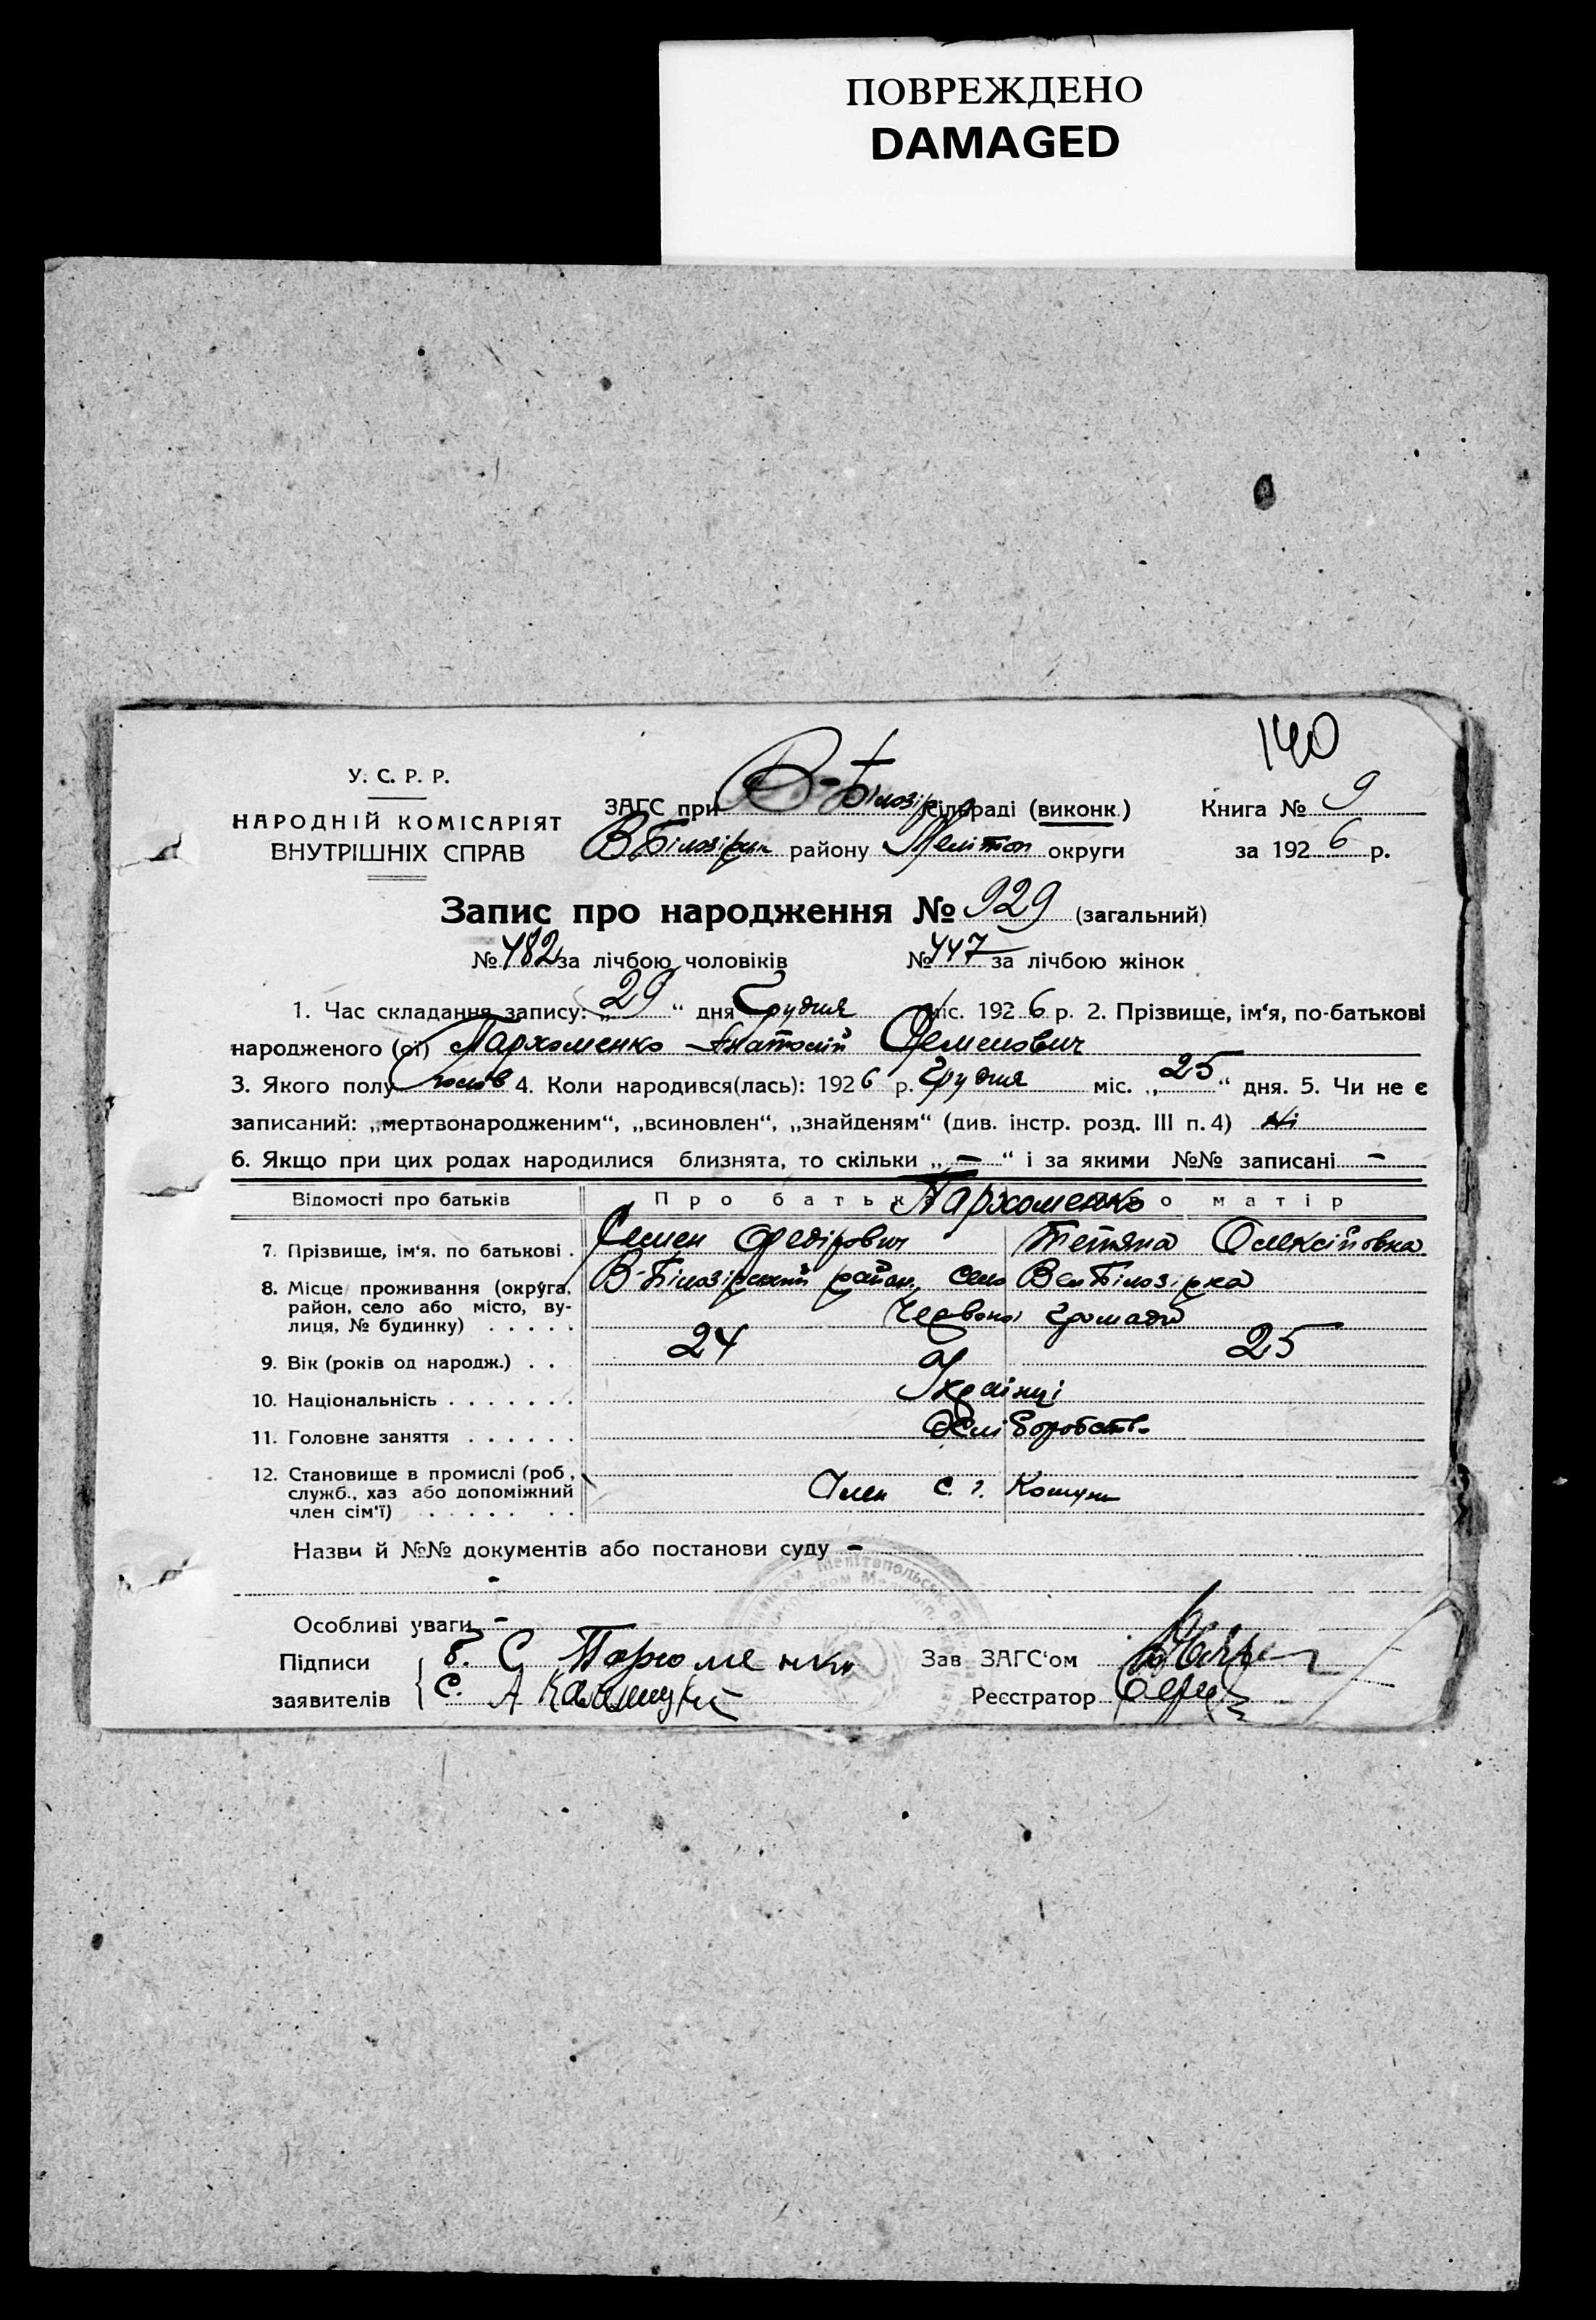 ПОВРЕЖДЕНО
DAMAGED
140
У. С. Р. Р.
НАРОДНІЙ КОМІСАРІЯТ
ВНУТРІШНІХ СПРАВ
ЗАГС при В-Білозір сільраді (виконк.)
В.Білозірськ району Мелітоп округи
Книга № 9
за 1926 р.
Запис про народження № 929 (загальний)
№ 482 за лічбою чоловіків № 447 за лічбою жінок
1. Час складання запису: „29“ дня Грудня міс. 1926 р. 2. Прізвище, ім‘я, по-батькові
народженого (ої) Пархоменко Анатолій Семенович
3. Якого полу чолов 4. Коли народився(лась): 1926 р. Грудня міс. „25“ дня. 5. Чи не є
записаний: „мертвонародженим“, „всиновлен“, „знайденям“ (див. інстр. розд. III п. 4) Ні
6. Якщо при цих родах народилися близнята, то скільки „—“ і за якими №№ записані —
Відомості про батьків Про батька Про матір
Пархоменко
7. Прізвище, ім‘я, по батькові . Семен Федірович Тетяна Олексіївна
8. Місце проживання (округа, В-Білозірський район, село Вел Білозірка
район, село або місто, ву-
лиця, № будинку) . . . . . Червоної громади
9. Вік (років од народж.) . . 24 25
10. Національність . . . . . . . Українці
11. Головне заняття . . . . . . Хліборобств
12. Становище в промислі (роб.,
служб., хаз або допоміжний Член с. г. Комуни
член сім‘ї) . . . . . . .
Назви й №№ документів або постанови суду —
Особливі уваги —
Підписи
заявителів
б. С Пархоменко
с. А
Зав ЗАГС‘ом
Реєстратор